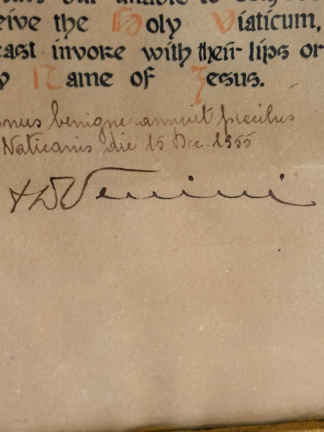 but unable to
ceive the Holy Viaticum,
east invoke with their lips or
y Name of Jesus.
benigne annuit precibus
Vaticanis die 15 Dec. 1955